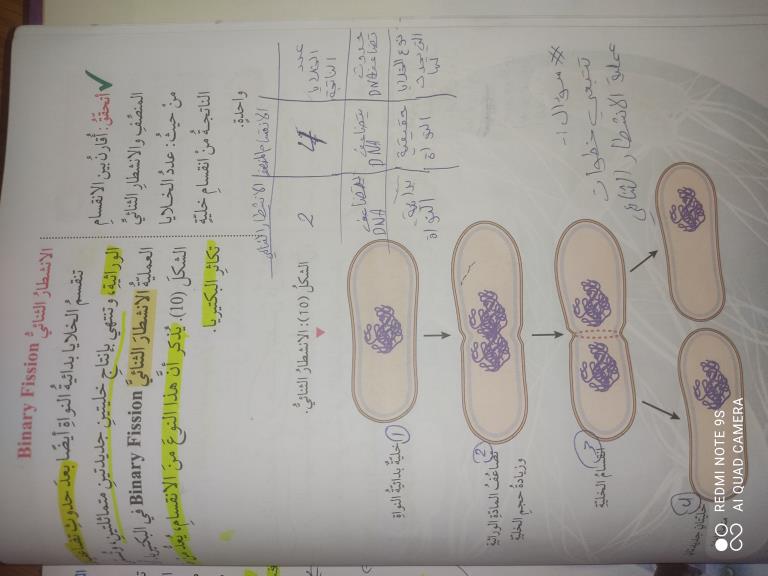 Binary Fission الانشطارُ الثنائيُّ
تنقسمُ الخلايا بدائيةُ النواةِ أيضًا بعدَ حدوثِ
الوراثيةِ، وتنتهي بإنتاجِ خليتينِ جديدتينِ متماثلتينِ،
العمليةُ الانشطارَ الثنائيَّ Binary Fission في البكتيريا
الشكلَ (10). يُذكَرُ أنَّ هذا النوعَ منَ الانقسامِ،
تكاثرِ البكتيريا.
✓ أتحققُ: أقارنُ بين الانقسامِ
المنصِّفِ والانشطارِ الثنائيِّ
منْ حيثُ: عددُ الخلايا
الناتجةُ منْ انقسامِ خليةٍ
واحدةٍ.
الانقسام المنصف
الانشطار الثنائي
عدد الخلايا الناتجة
4
2
حدوث تضاعف DNA
يتضاعف DNA
يتضاعف DNA
نوع الخلايا التي يحدث فيها
حقيقية النواة
بدائية النواة
الشكلُ (10): الانشطارُ الثنائيُّ.
* سؤال 1-
تتبعي خطوات
عملية الانشطار الثنائي
1 خليةٌ بدائيةُ النواةِ
2 تضاعفُ المادةِ الوراثيةِ
وزيادةُ حجمِ الخليةِ
3 انقسامُ الخليةِ
4 خليتانِ جديدتانِ
REDMI NOTE 9S
AI QUAD CAMERA